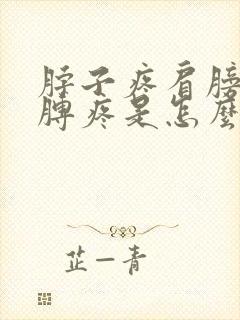 脖子疼肩膀
脾疼是怎麼
芷一青